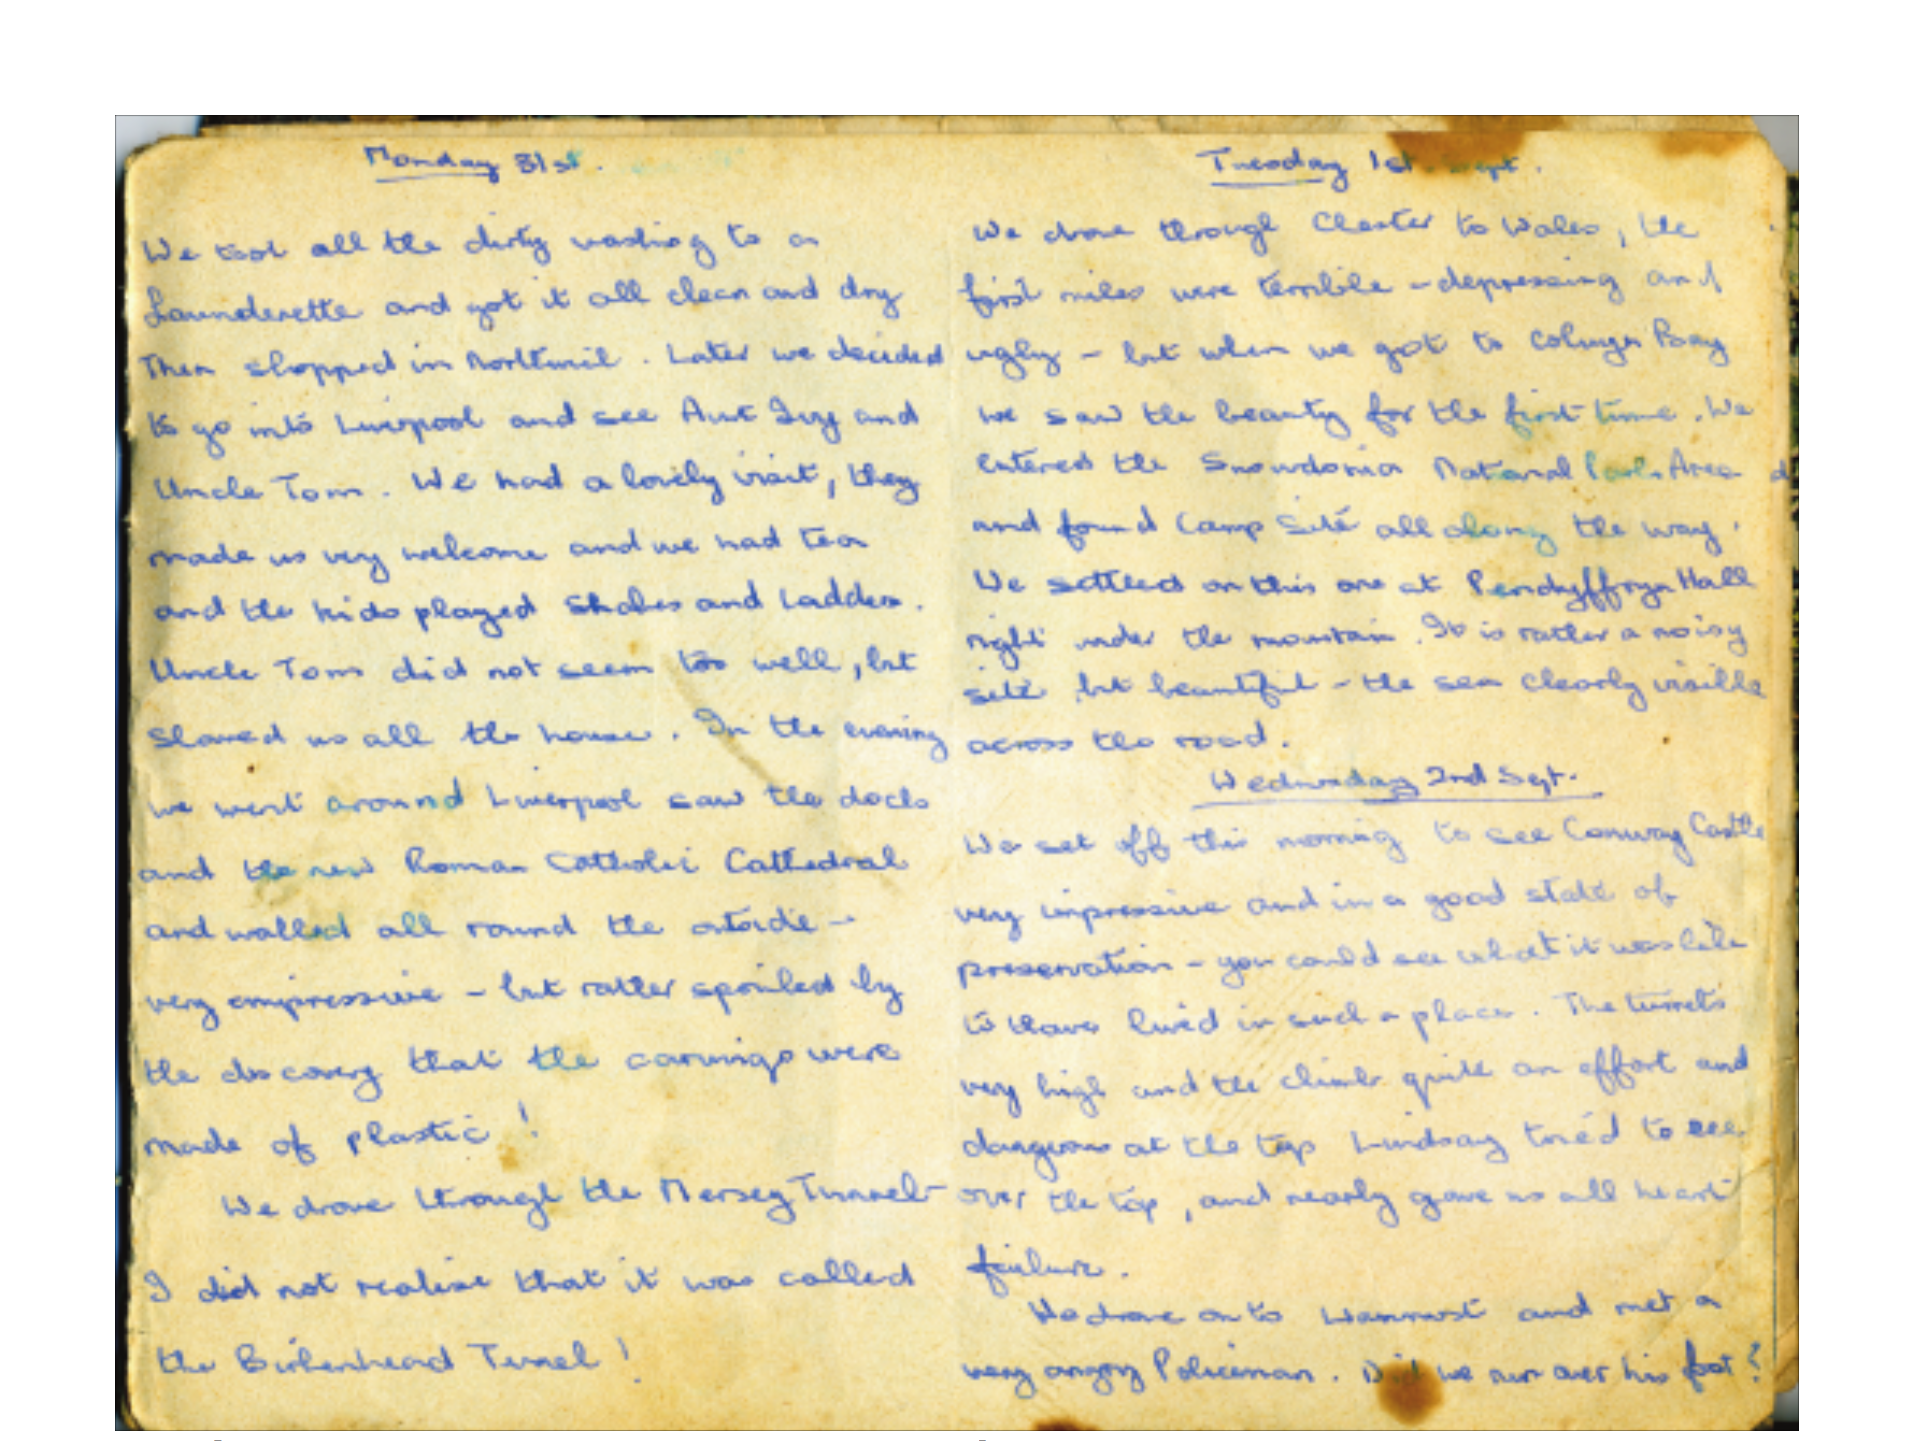 Monday 31st.
We took all the dirty washing to a
Launderette and got it all clean and dry
Then shopped in . Later we decided
to go into Liverpool and see Aunt Ivy and
Uncle Tom. We had a lovely visit, they
made us very welcome and we had tea
and the kids played Snakes and Ladders.
Uncle Tom did not seem too well, but
showed us all the house. In the evening
we went around Liverpool saw the docks
and the new Roman Catholic Cathedral
and walked all round the outside -
very empressive - but rather spoiled by
the discovery that the carvings were
made of plastic!
We drove through the Mersey Tunnel -
I did not realise that it was called
the Birkenhead Tunnel!
Tuesday 1st. Sept.
We drove through Chester to Wales, the
first miles were terrible - depressing and
ugly - but when we got to Colwyn Bay
we saw the beauty for the first time. We
entered the Snowdonia National Park Area
and found Camp Site all along the way.
We settled on this one at Pendyffryn Hall
right under the mountain. It is rather a noisy
site, but beautiful - the sea clearly visible
across the road.
Wednesday 2nd Sept.
We set off this morning to see Conway Castle
very impressive and in a good state of
preservation - you could see what it was like
to have lived in such a place. The turrets
very high and the climb quite an effort and
dangerous at the top Lindsay tried to see
over the top, and nearly gave us all heart
failure.
We drove on to and met a
very angry Policeman. Did we run over his foot?